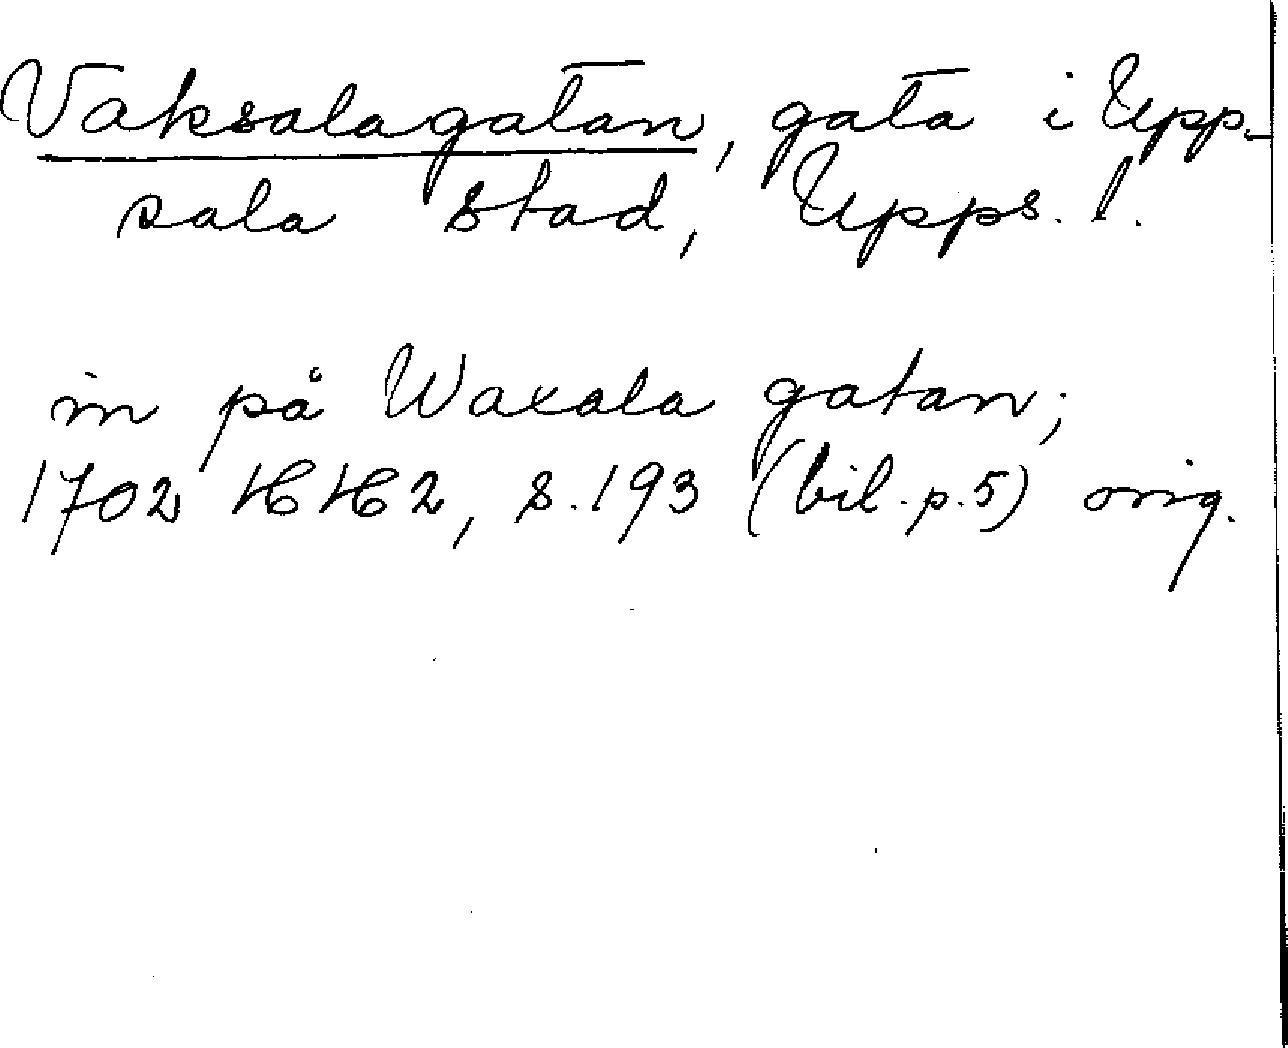 Vaksalagatan, gata i Upp-
sala stad, Upps. l.
in på Waxala gatan;
1702 HH2, s. 193 (bil. p. 5) orig.